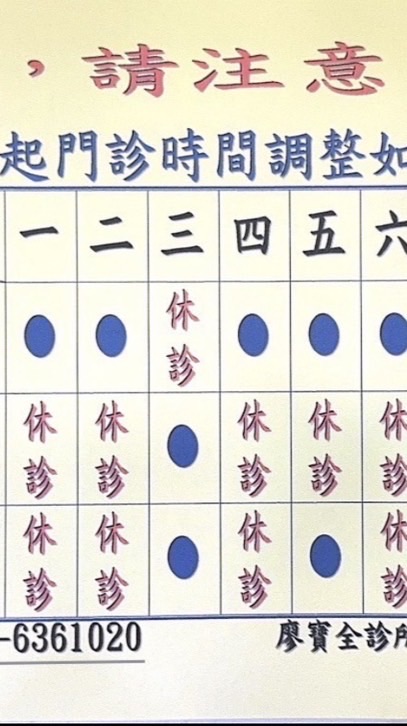 ，請注意
起門診時間調整如
一 二 三 四 五 六
休診
休診 休診 休診 休診 休診
休診 休診 休診 休診
-6361020 廖寶全診所